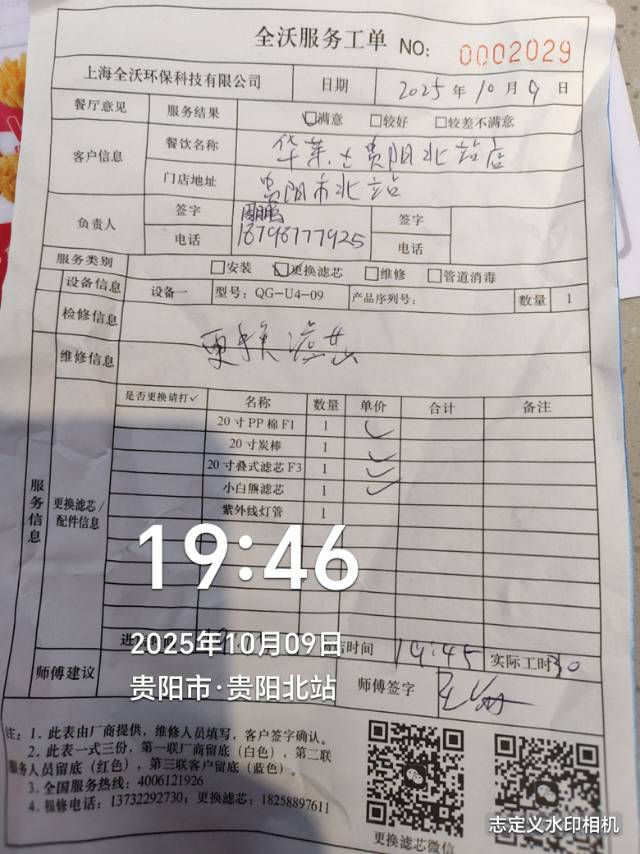 全沃服务工单 NO: 0002029
上海全沃环保科技有限公司 日期 2025年10月9日
餐厅意见 服务结果 ☑满意 □较好 □较差不满意
客户信息 餐饮名称 华莱士贵阳北站店
门店地址 贵阳市北站
负责人 签字 周鹏 签字
电话 18798177925 电话
服务类别 □安装 ☑更换滤芯 □维修 □管道消毒
设备信息 设备一 型号: QG-U4-09 产品序列号: 数量 1
检修信息
维修信息 更换滤芯
服务信息
更换滤芯/配件信息
是否更换请打✓ 名称 数量 单价 合计 备注
20寸PP棉F1 1 ✓
20寸炭棒 1 ✓
20寸叠式滤芯F3 1 ✓
小白熊滤芯 1 ✓
紫外线灯管 1
19:46
进 店时间 19:45 实际工时 30
2025年10月09日
贵阳市·贵阳北站
师傅建议 师傅签字
注: 1. 此表由厂商提供，维修人员填写，客户签字确认。
2. 此表一式三份，第一联厂商留底（白色），第二联
服务人员留底（红色），第三联客户留底（蓝色）。
3. 全国服务热线: 4006121926
4. 报修电话: 13732292730; 更换滤芯: 18258897611
更换滤芯微信
志定义水印相机